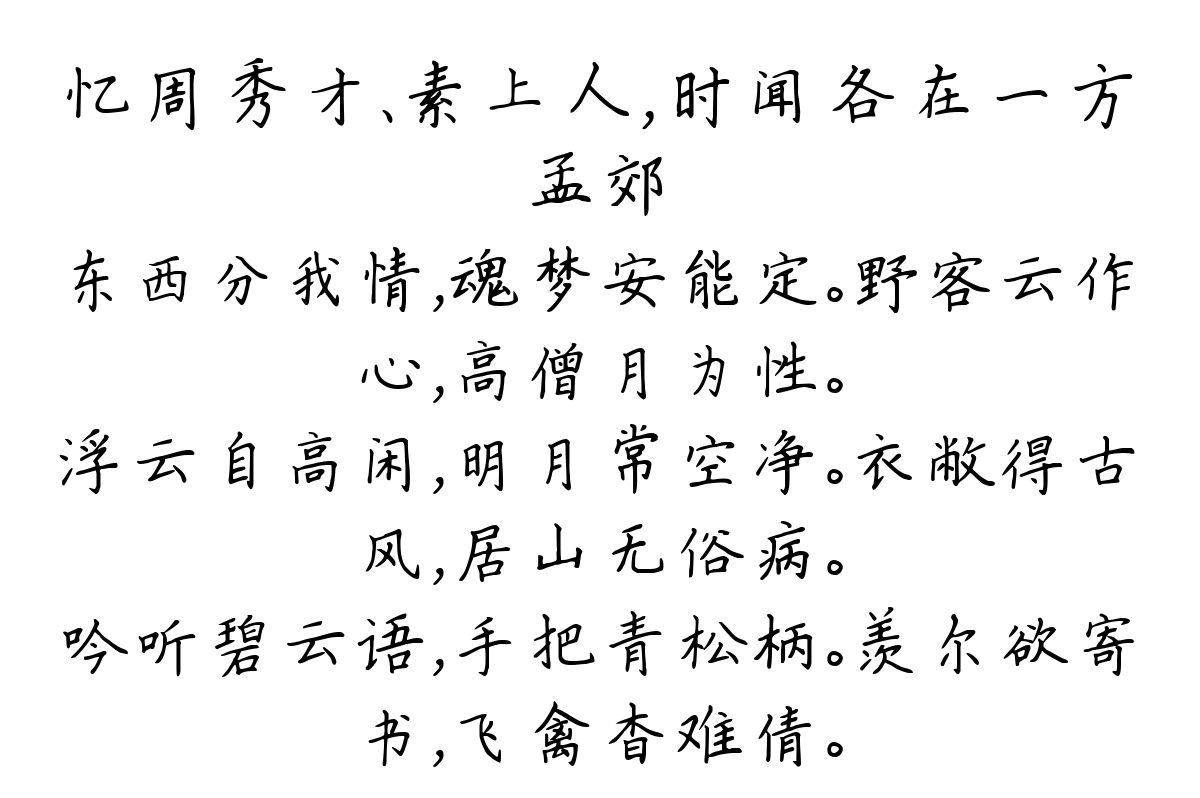 忆周秀才、素上人,时闻各在一方
孟郊
东西分我情,魂梦安能定。野客云作
心,高僧月为性。
浮云自高闲,明月常空净。衣敝得古
风,居山无俗病。
吟听碧云语,手把青松柄。羡尔欲寄
书,飞禽杳难倩。